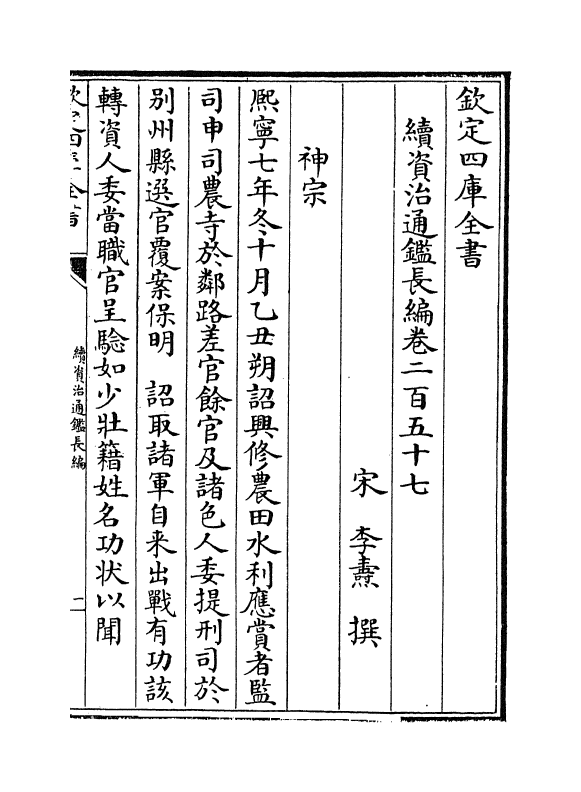 欽定四庫全書
續資治通鑑長編卷二百五十七
宋 李燾 撰
神宗
熈寧七年冬十月乙丑朔詔興修農田水利應賞者監
司申司農寺於鄰路差官餘官及諸色人委提刑司於
别州縣選官覆案保明 詔取諸軍自来出戰有功該
轉資人委當職官呈驗如少壯籍姓名功状以聞
欽定四庫全書
續資治通鑑長編